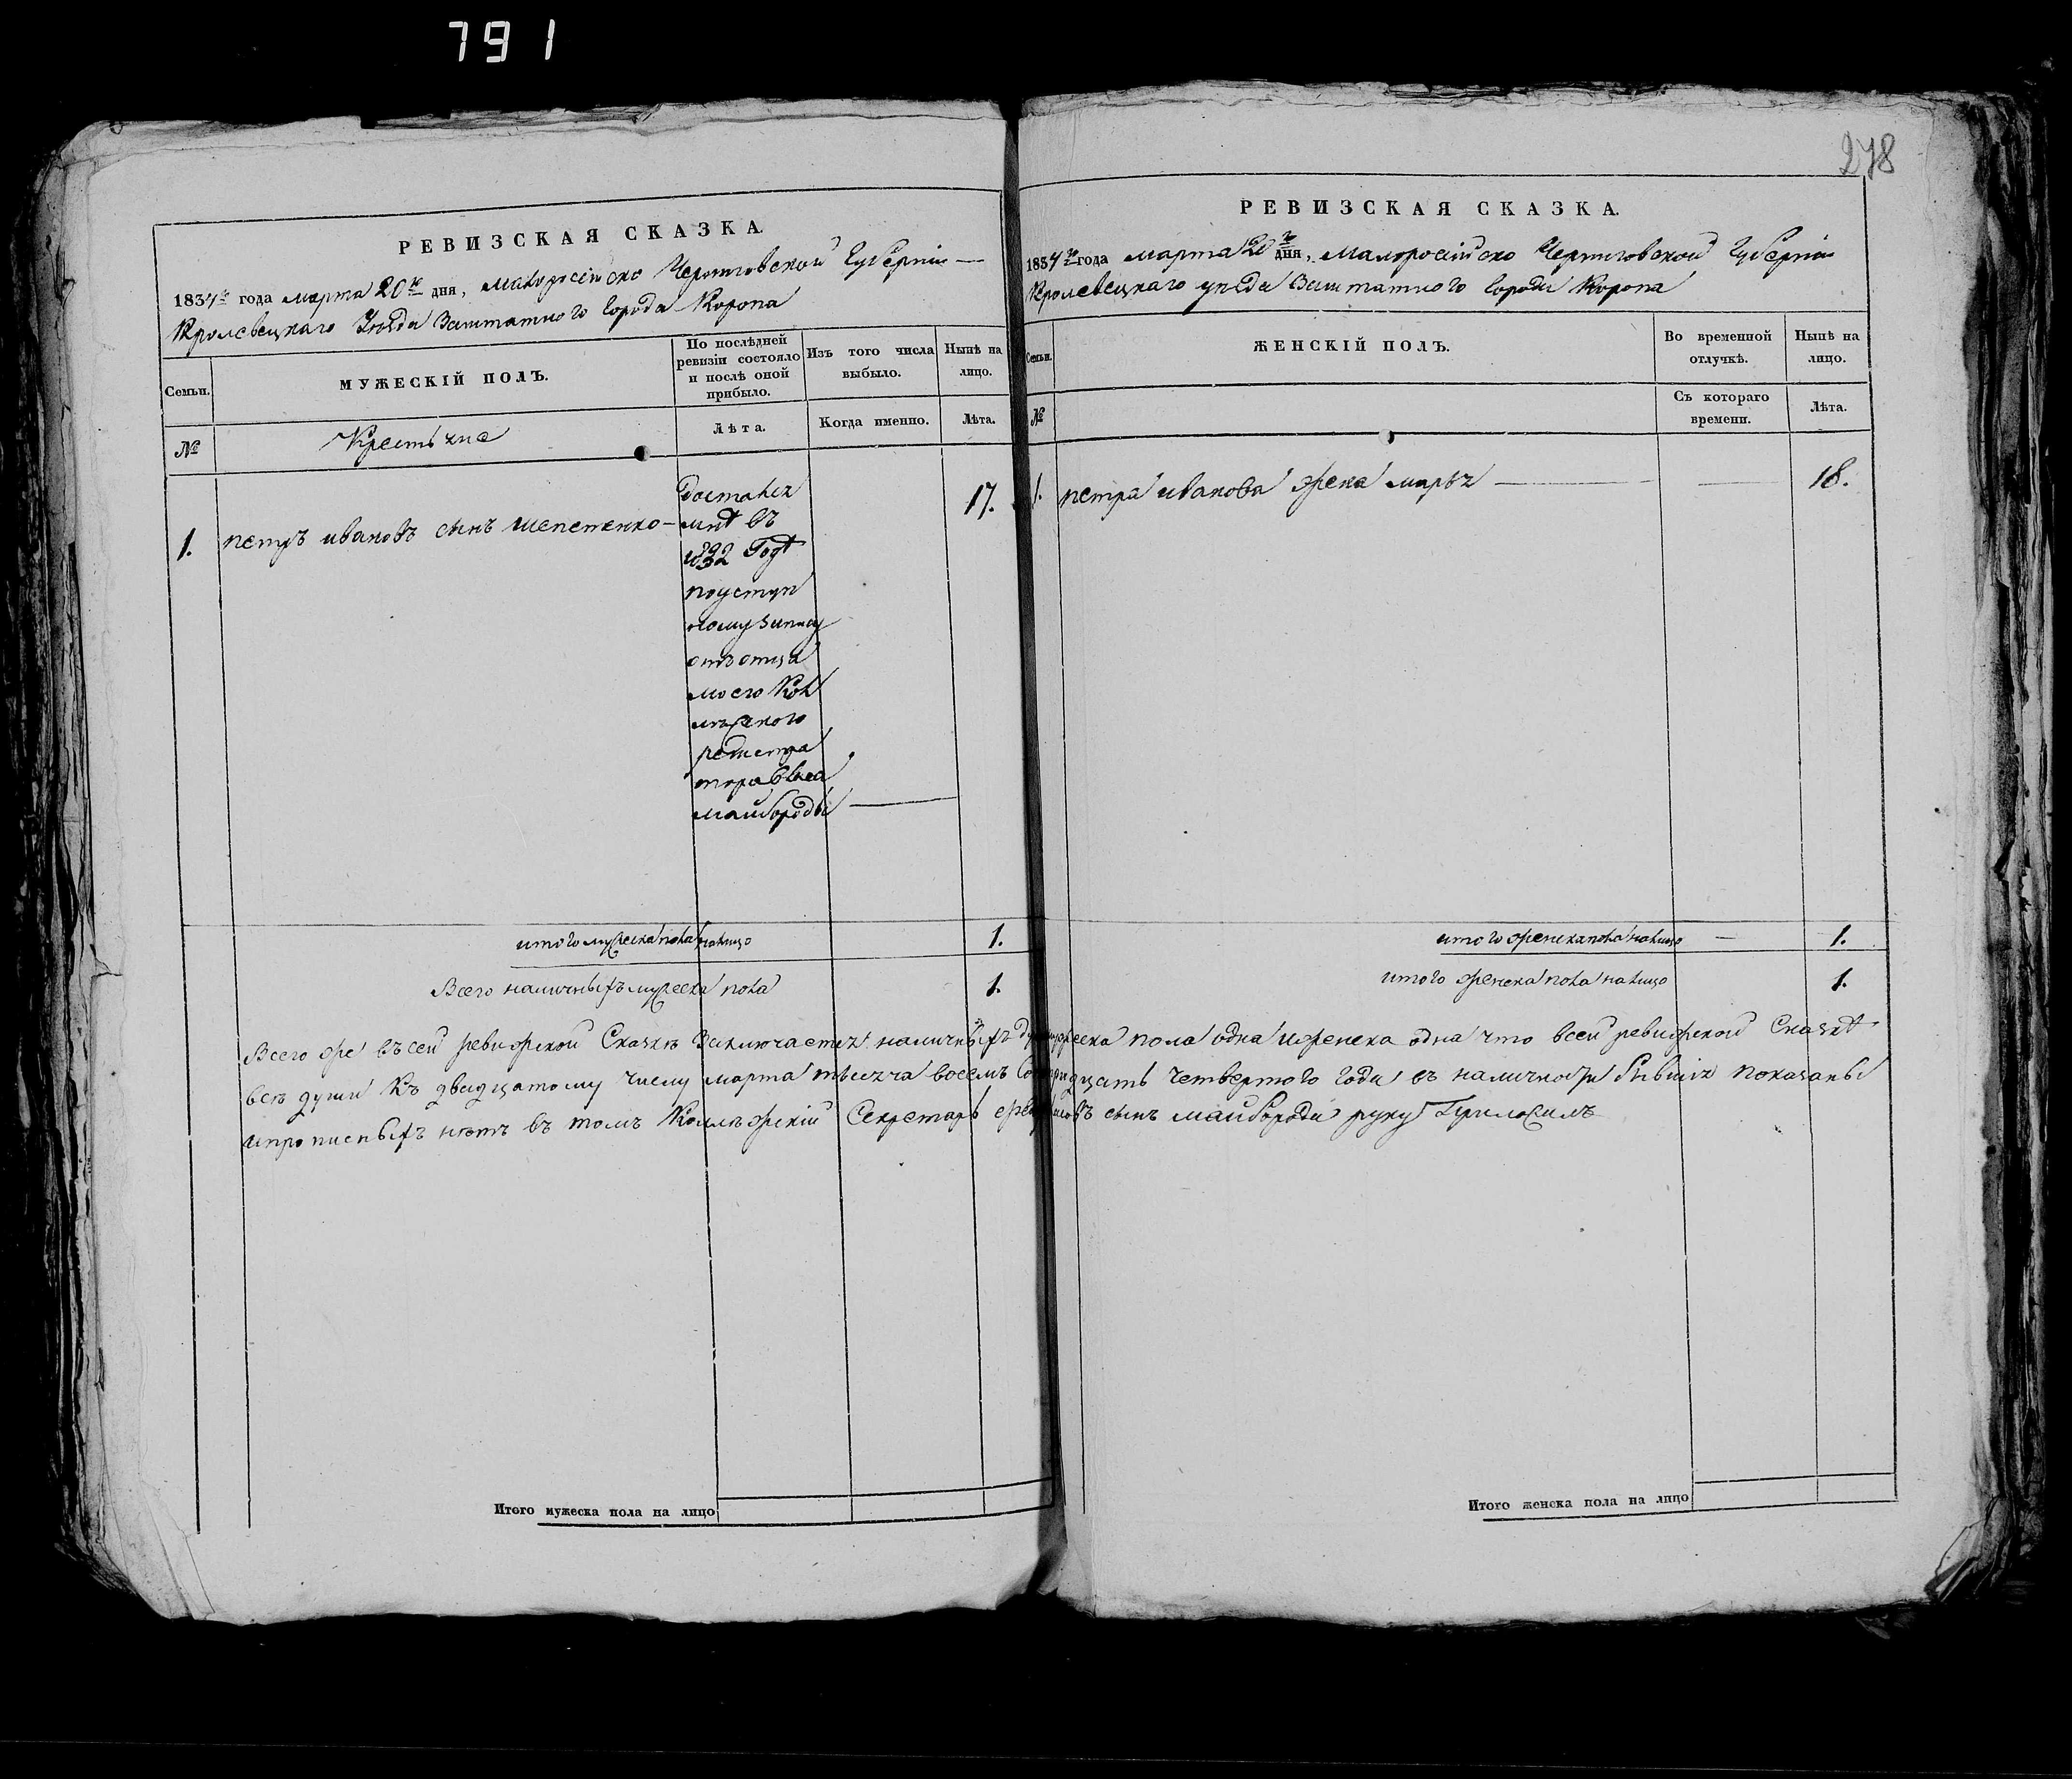 791
278
РЕВИЗСКАЯ СКАЗКА.
1834го года марта 20го дня, малоросійско Черниговской Губерніи —
Кролевецкаго Уѣзда Заштатного Города Коропа
Семьи.
МУЖЕСКІЙ ПОЛЪ.
По послѣдней ревизіи состояло и послѣ оной прибыло.
Изъ того числа выбыло.
Нынѣ на лицо.
№
Крестьяне
Лѣта.
Когда именно.
Лѣта.
1. петръ ивановъ сынъ шепетенко — 17.
Достался
мнѣ въ
1832 Годѣ
поуступ
ному запису
отъ отца
моего Кол
лѣжского
регистра
тора
майбороды —
итого мужеска пола налицо 1.
Всего наличныхъ мужеска пола 1.
РЕВИЗСКАЯ СКАЗКА.
1834го года марта 20го дня, малоросійско Черниговской Губерніи
Кролевецкаго уѣзда Заштатного Города Коропа
Семьи.
ЖЕНСКІЙ ПОЛЪ.
Во временной отлучкѣ.
Нынѣ на лицо.
№
Съ котораго времени.
Лѣта.
1. петра иванова жена марья — — 18.
итого женска пола налицо — 1.
итого женска пола налицо 1.
Всего же въ сей ревижской Сказкѣ Заключается наличныхъ душ мужеска пола одна и женска одна что всей ревижской Сказкѣ
всѣ души Къ двадцатому числу марта тысяча восемъ Сот тридцать четвертого года въ наличности бывшія показаны
и прописныхъ нѣтъ въ томъ Коллѣжскій Секретарь сынъ майборода руку Приложилъ
Итого мужеска пола на лицо
Итого женска пола на лицо